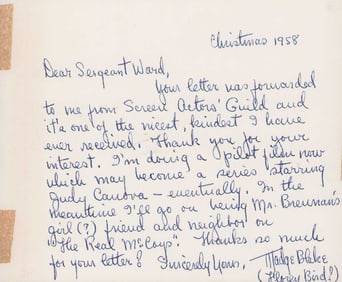 Christmas 1958
Dear Sergeant Ward,
Your letter was forwarded
to me from Screen Actors' Guild and
it's one of the nicest, kindest I have
ever received. Thank you for your
interest. I'm doing a pilot film now
which may become a series starring
Judy Canova – eventually. In the
meantime I'll go on being Mr. Brennan's
girl (?) friend and neighbor on
"The Real McCoys". Thanks so much
for your letter! Sincerely Yours, Madge Blake
(Flossy Bird!)